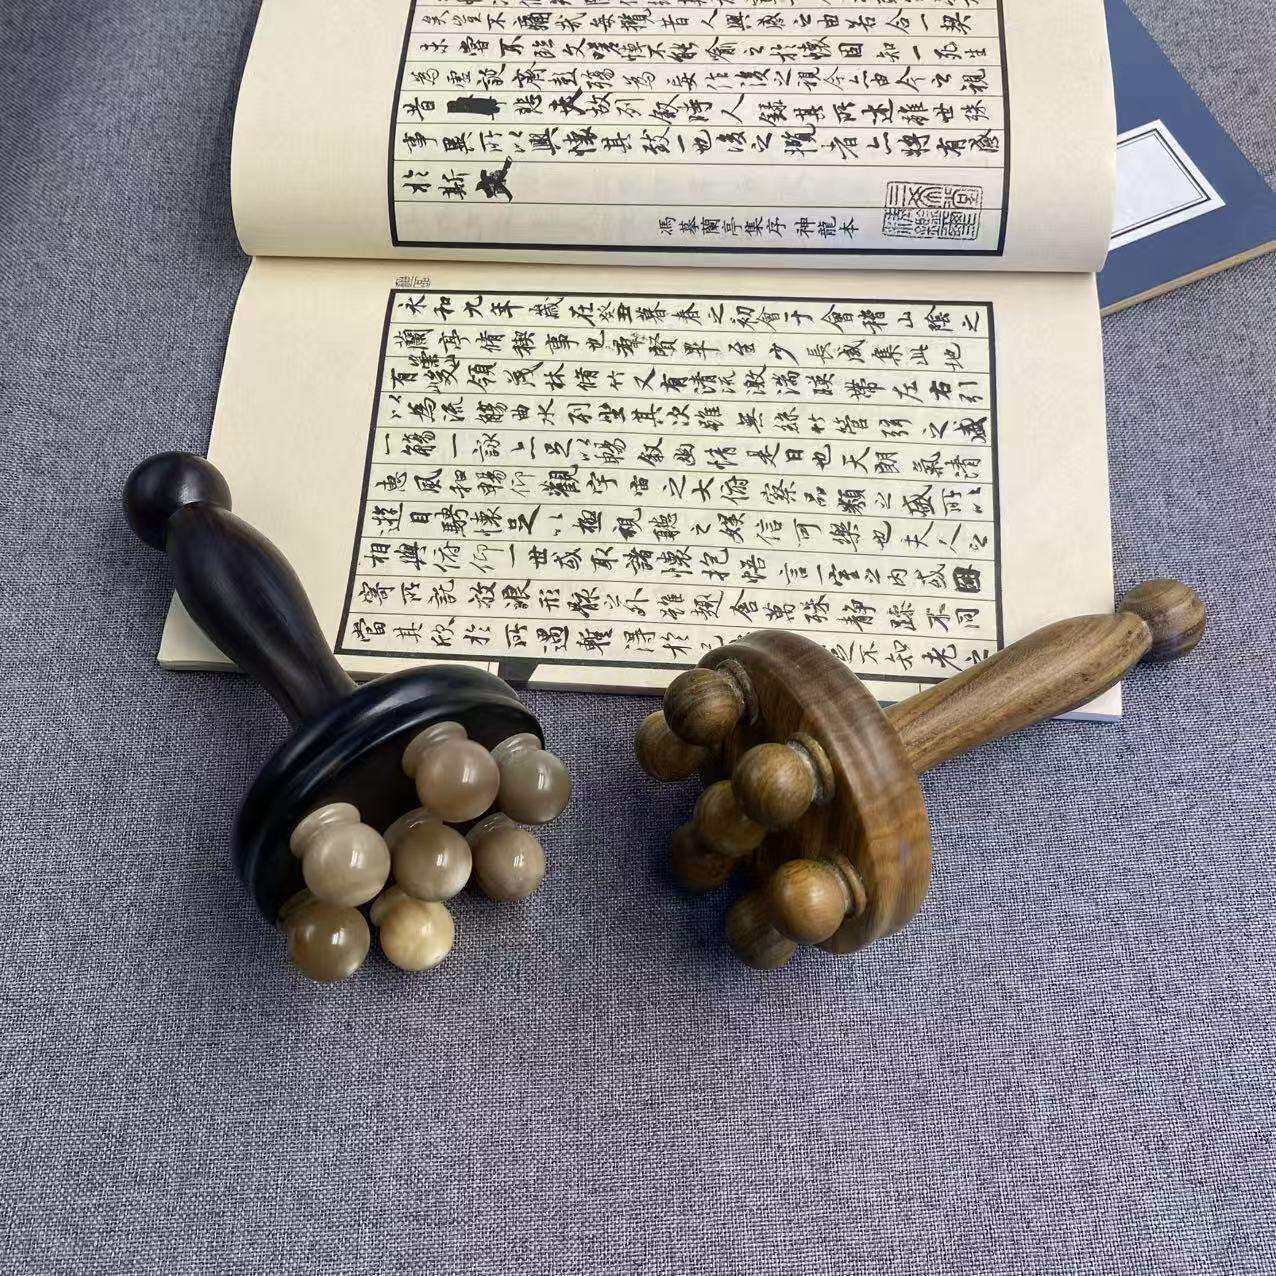 矣豈不痛哉每攬昔人興感之由若合一契
未嘗不臨文嗟悼不能喻之於懷固知一死生
為虛誕齊彭殤為妄作後之視今亦由今之視
昔悲夫故列敘時人錄其所述雖世殊
事異所以興懷其致一也後之攬者亦將有感
於斯文
馮摹蘭亭集序 神龍本
永和九年歲在癸丑暮春之初會于會稽山陰之
蘭亭脩稧事也羣賢畢至少長咸集此地
有崇山峻領茂林脩竹又有清流激湍暎帶左右引
以為流觴曲水列坐其次雖無絲竹管弦之盛
一觴一詠亦足以暢敘幽情是日也天朗氣清
惠風和暢仰觀宇宙之大俯察品類之盛所以
遊目騁懷足以極視聽之娛信可樂也夫人之
相與俯仰一世或取諸懷抱悟言一室之內或因
寄所託放浪形骸之外雖趣舍萬殊靜躁不同
當其欣於所遇暫得於己不知老之